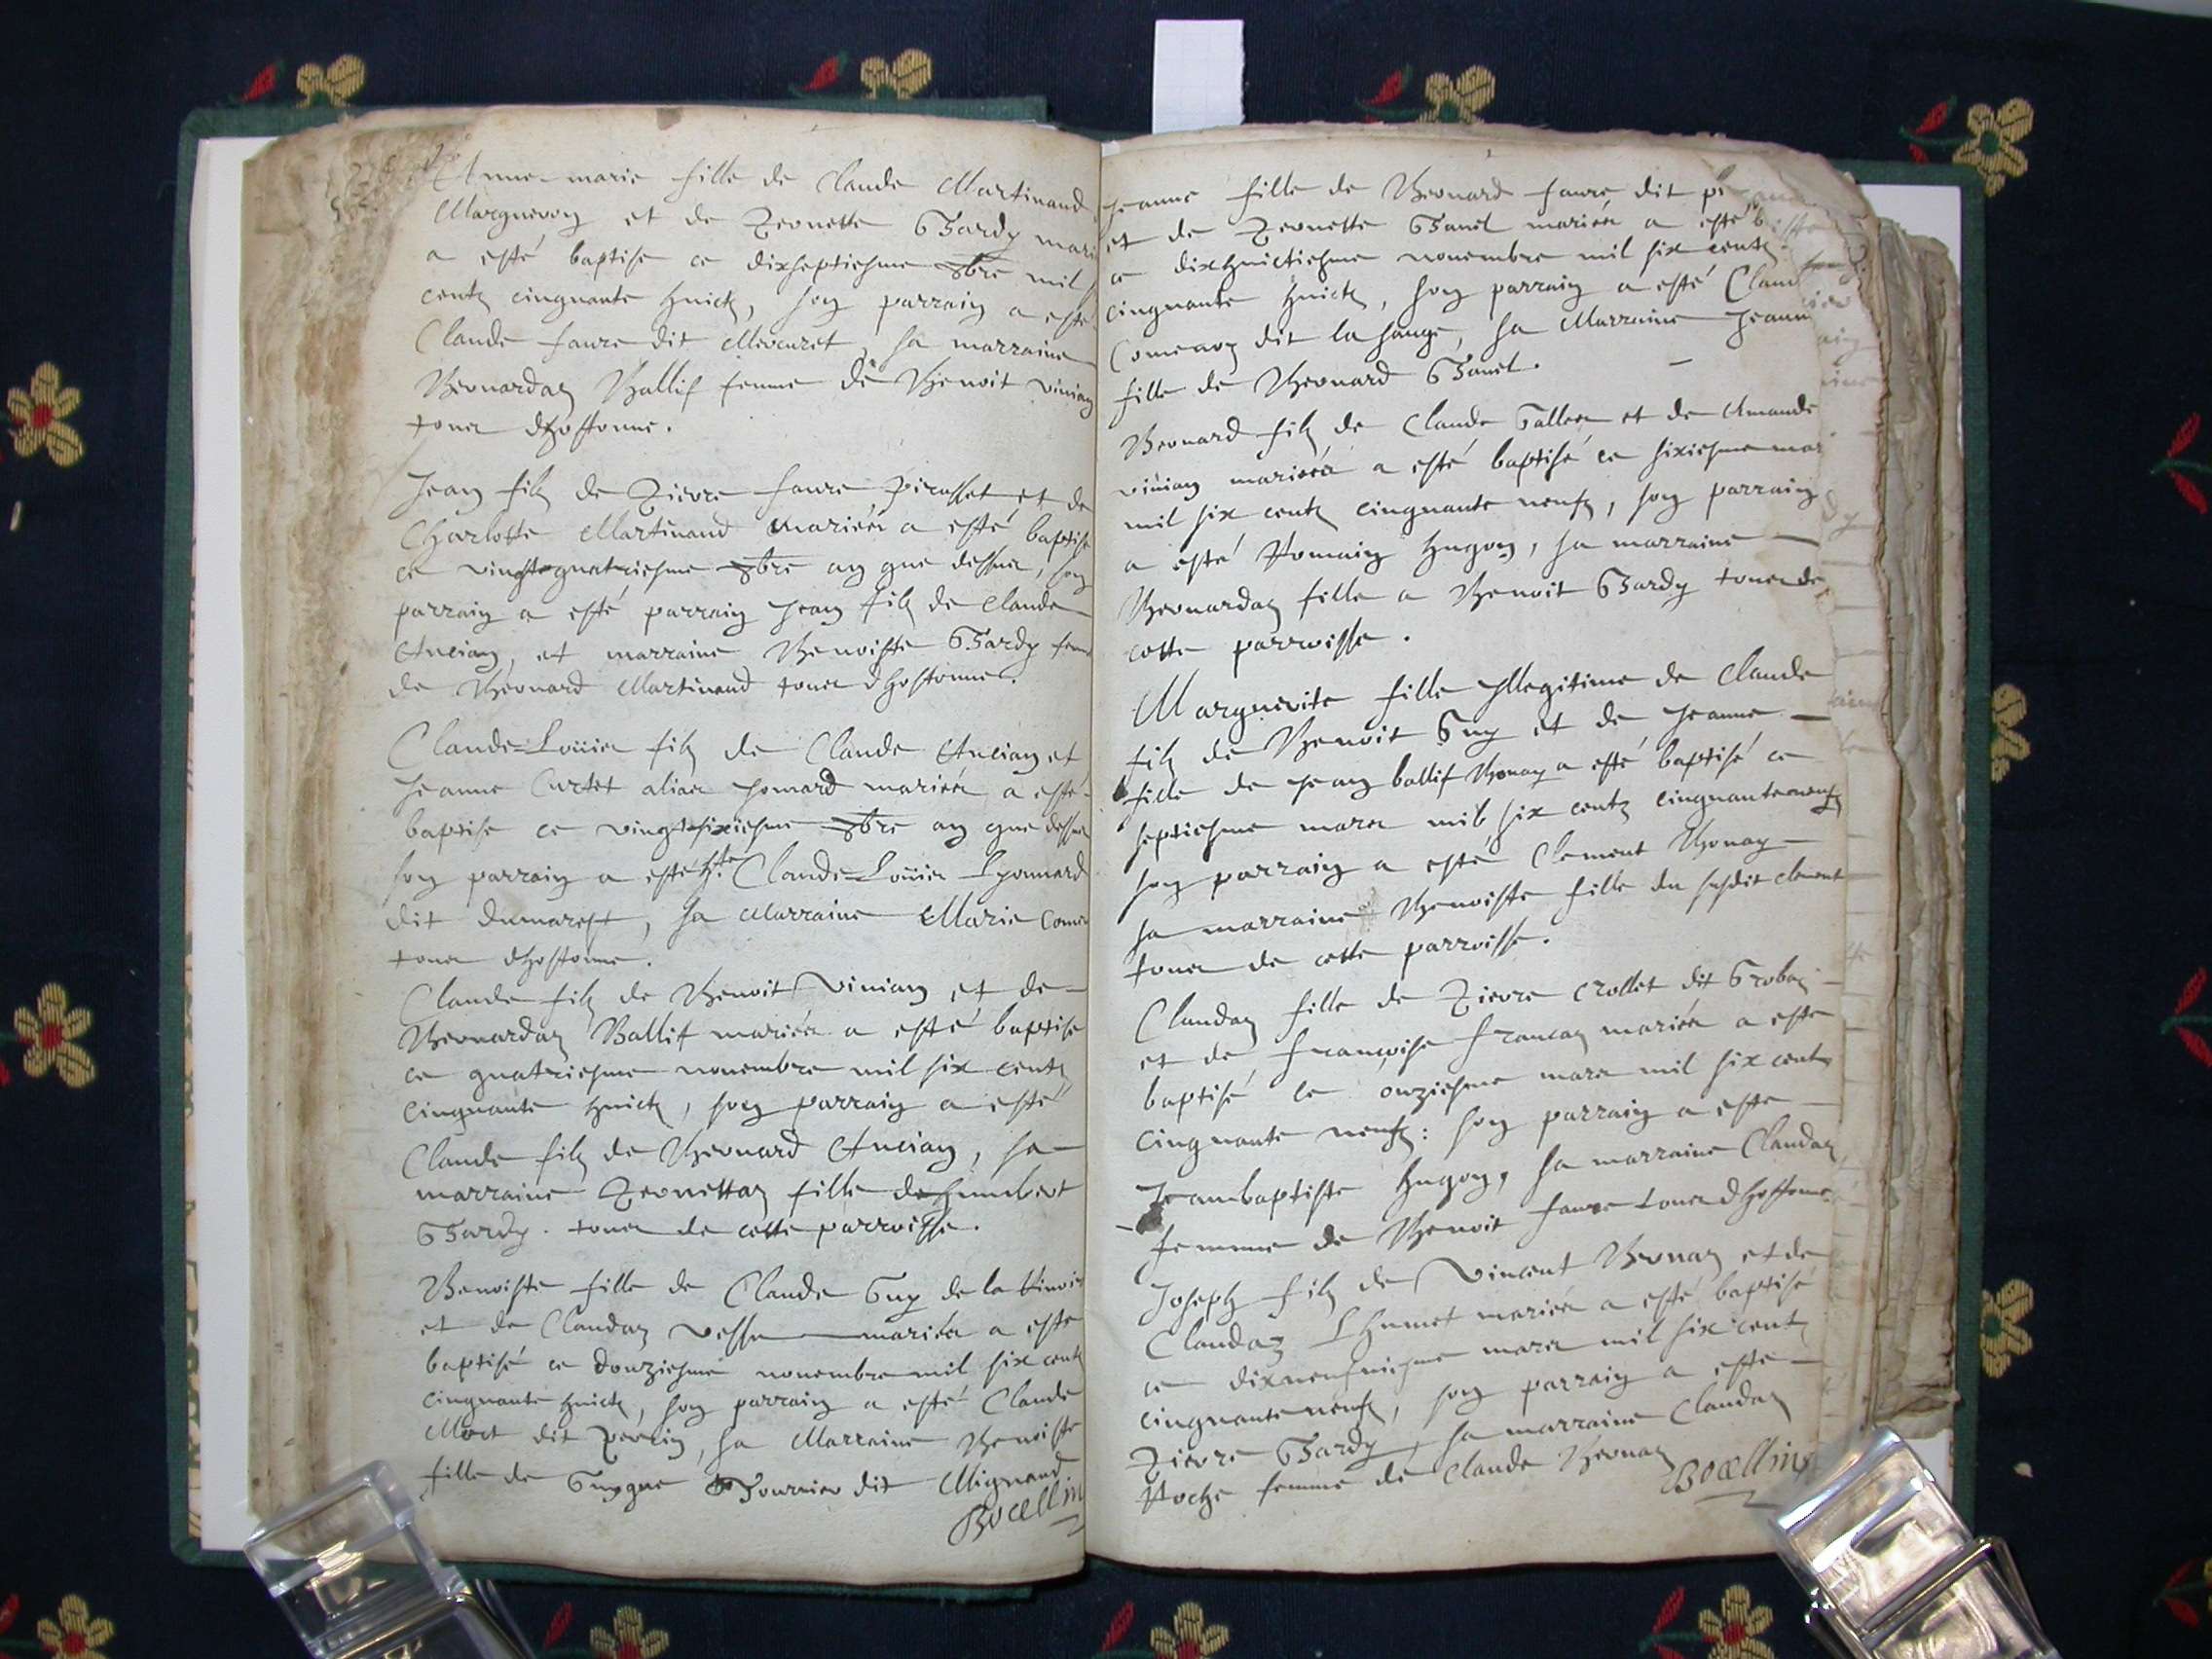 Anne-marie fille de Claude Martinand
Marguevoy et de Pernette Gardy mari
a esté baptisé ce dixseptiesme 8bre mil
centz cinquante huictz, son parrain a esté
Claude faure dit Mercuret, sa marraine
Bernardaz Ballif femme de Benoit vinian
tous d'hostonne.
Jean filz de Pierre faure Pirasset et de
Charlotte Martinand mariés a esté baptisé
ce vingtquatriesme 8bre an que dessus, son
parrain a esté parrain Jean filz de Claude
Ancian, et marraine Benoiste Gardy fem
de Bernard Martinand tous d'hostonne.
Claude-Louis filz de Claude Ancian et
Jeanne Curtet alias Jomard mariés a esté
baptisé ce vingtsixiesme 8bre an que dessus
son parrain a esté hste Claude-Louis Lyonnard
dit dumarest, sa Marraine Marie Come
tous d'hostonne.
Claude filz de Benoit Vinian et de
Bernardaz Ballif mariés a esté baptisé
ce quatriesme novembre mil six centz
cinquante huictz, son parrain a esté
Claude filz de Bernard Ancian, sa
marraine Pernettaz fille de humbert
Gardy. tous de cette parroisse.
Benoiste fille de Claude Guy de la
et de Claudaz vesse mariés a esté
baptisé ce douziesme novembre mil six centz
cinquante huictz, son parrain a esté Claude
Mort dit Perrin, sa Marraine Benoiste
fille de Guygue Fournier dit Mignard
Bocellin
Jeanne fille de Bernard faure dit pi
et de Pernette Ganel mariés a esté
ce dixhuictiesme novembre mil six centz
cinquante huictz, son parrain a esté Claud
Comenoz dit la sauge, sa Marraine Jeann
fille de Bernard Ganel.
Bernard filz de Claude Tallen et de Amande
vinian mariés a esté baptisé ce sixiesme mar
mil six centz cinquante neufz, son parrain
a esté Romain hugon, sa marraine
Bernardaz fille a Benoit Gardy tous de
cette parroisse.
Marguerite fille Illegitime de Claude
filz de Benoit Guy et de Jeanne
fille de Jean ballif Thonay a esté baptisé ce
septiesme mars mil six centz cinquanteneufz
son parrain a esté Clement Thonay
sa marraine Benoiste fille du susdit clement
tous de cette parroisse.
Claudaz fille de Pierre Crollet dit Grobaz
et de francoise francaz mariés a esté
baptisé ce onziesme mars mil six centz
cinquante neufz: son parrain a esté
Jeanbaptiste hugon, sa marraine Claudaz
femme de Benoit faure tous d'hostonne.
Joseph filz de Vincent Bernaz et de
Claudaz Lhumet mariés a esté baptisé
ce dixneufviesme mars mil six centz
cinquanteneufz, son parrain a esté
Pierre Gardy, sa marraine Claudaz
Roche femme de Claude Bernaz
Bocellin